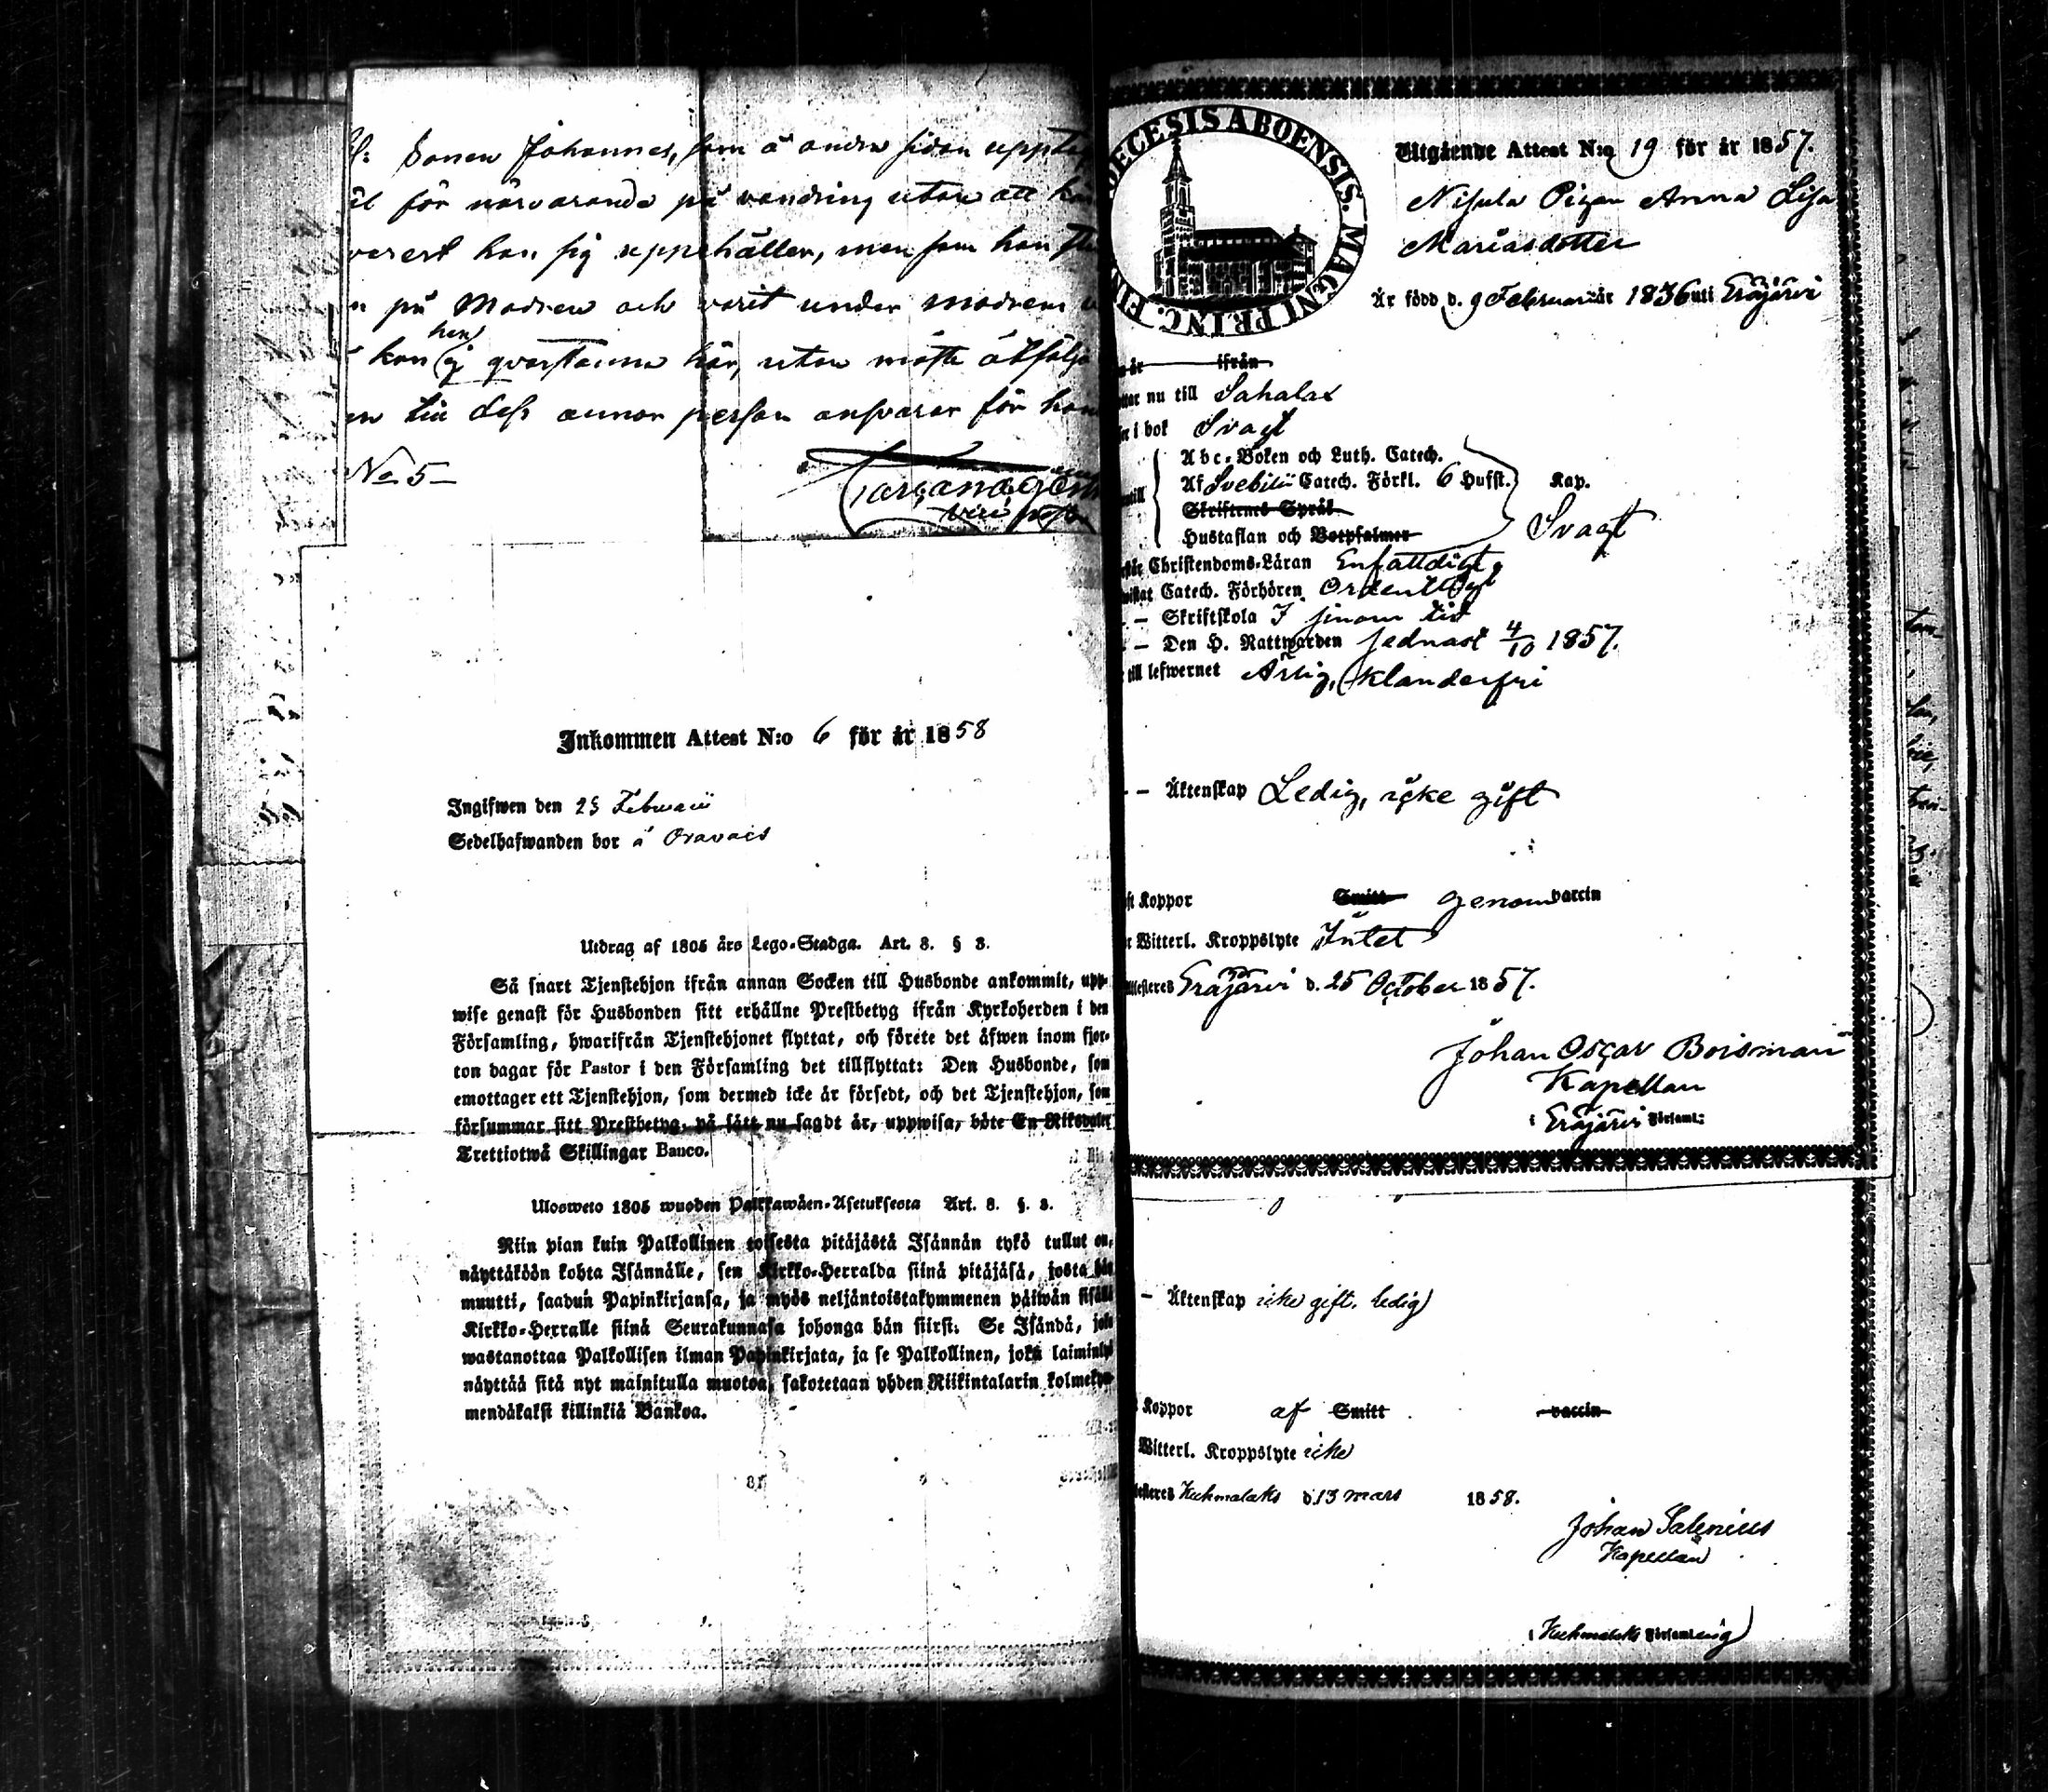 Sonen Johannes, som å andra sidan uppta
för närvarande på vandring utan att
varest han sig uppehåller, men som han
på Modren och varit under modrens
kan han ej qvarstanna här, utan måste åtfölja
till dess annor person ansvarar för
No 5
Inkommen Attest N:o 6 för år 1858
Ingifwen den 25 Februarii
Sedelhafwanden bor å Oravais
Utdrag af 1805 års Lego-Stadga. Art. 8. § 3.
Så snart Tjenstehjon ifrån annan Socken till Husbonde ankommit, upp-
wise genast för Husbonden sitt erhållne Prestbetyg ifrån Kyrkoherden i den
Församling, hwarifrån Tjenstehjonet flyttat, och förete det äfwen inom fjor-
ton dagar för Pastor i den Församling det tillflyttat: Den Husbonde, som
emottager ett Tjenstehjon, som dermed icke är försedt, och det Tjenstehjon, som
försummar sitt Prestbetyg, på sätt nu sagdt är, uppwisa, böte En Riksdaler
Trettiotwå Skillingar Banco.
Ulosweto 1805 wuoden Palkkawäen-Asetuksesta Art. 8. §. 3.
Niin pian kuin Palkollinen toisesta pitäjästä Isännän tykö tullut on,
näyttäköön kohta Isännälle, sen Kirkko-Herralda siinä pitäjäsä, josta hän
muutti, saadun Papinkirjansa, ja myös neljäntoistakymmenen päiwän sisällä
Kirkko-Herralle siinä Seurakunnasa johonga hän siirsi. Se Isändä, joka
wastanottaa Palkollisen ilman Papinkirjata, ja se Palkollinen, joka laiminlyö
näyttää sitä nyt mainitulla muotoa, sakotetaan yhden Riikintalarin kolmeky-
mendäkaksi killinkiä Bankoa.
DECESIS ABOENSIS. MAGNI PRINC. FIN
Utgående Attest N:o 19 för år 1857.
Nisula Pigan Anna Lisa
Mariasdotter
Är född d. 9 Februari år 1836 uti Eräjärvi
år ifrån
nu till Sahalax
i bok Svagt
Abc-Boken och Luth. Catech.
Af Svebilii Catech. Förkl. 6 Hufst. Kap.
Skriftenes Språk
Hustaflan och Botpsalmer Svagt
Christendoms-Läran Enfaldigt
Catech. Förhören Ordentligt
— Skriftskola I sinom tid
— Den H. Nattwarden sednast 4/10 1857.
till lefwernet Ärlig, klanderfri
— Äktenskap Ledig, icke gift
Koppor Smitt genom vaccin
Witterl. Kroppslyte Intet
Eräjärvi d. 25 October 1857.
Johan Oscar Boisman
Kapellan
i Eräjärvi Församl:
— Äktenskap icke gift, ledig
Koppor af Smitt vaccin
Witterl. Kroppslyte icke
Kuhmalaks d. 13 mars 1858.
Johan Salenius
Kapellan
i Kuhmalaks Församling